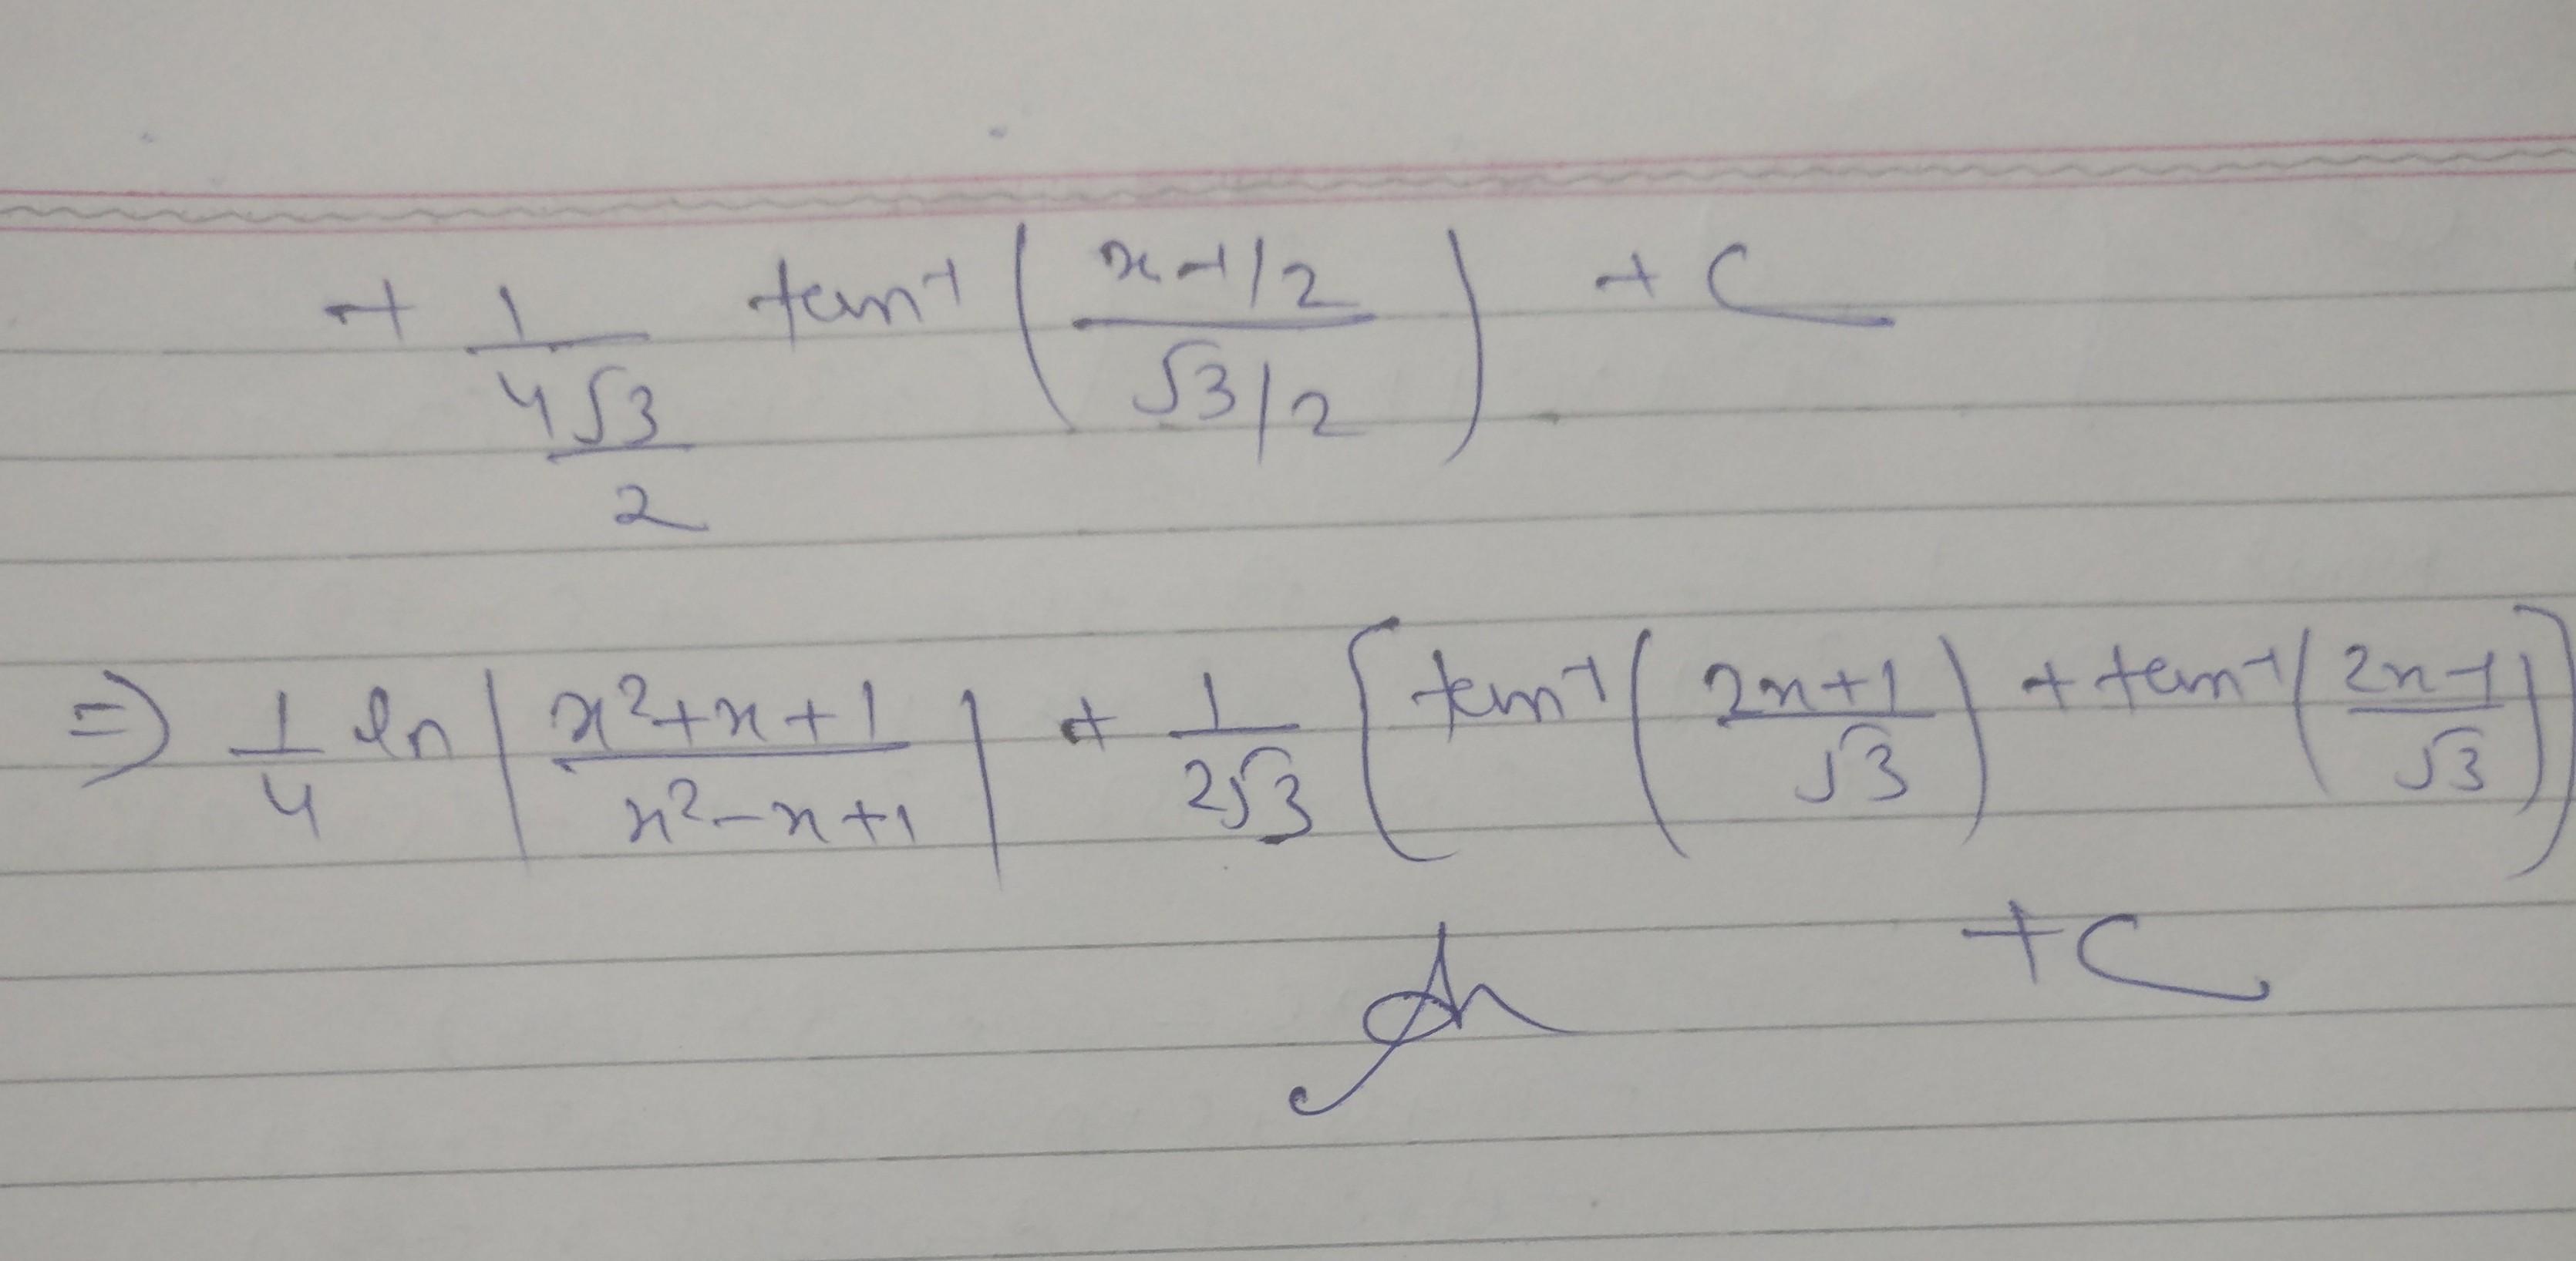 + 1/(4√3/2) tan⁻¹ ( (x-1/2)/(√3/2) ) + C
⇒ 1/4 ln | (x²+x+1)/(x²-x+1) | + 1/(2√3) [ tan⁻¹ ( (2x+1)/√3 ) + tan⁻¹ ( (2x-1)/√3 ) ]
+ C